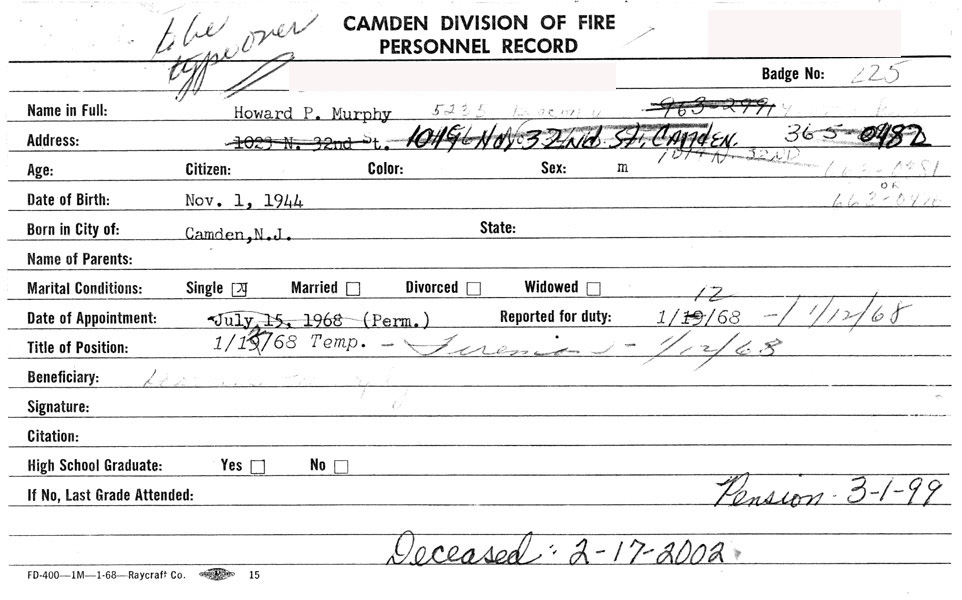 to be
type over
CAMDEN DIVISION OF FIRE
PERSONNEL RECORD
Badge No: 225
Name in Full: Howard P. Murphy 5235 963-2991
Address: 1029 N. 32nd St. 1049 No. 32nd. St. CAMDEN. 365-0482
1014 N. 32ND
Age: Citizen: Color: Sex: m
OR
Date of Birth: Nov. 1, 1944
Born in City of: Camden, N.J. State:
Name of Parents:
Marital Conditions: Single Married Divorced Widowed
12
Date of Appointment: July 15, 1968 (Perm.) Reported for duty: 1/19/68 - 1/12/68
Title of Position: 1/13/68 Temp. - Fireman - 1/12/68
Beneficiary:
Signature:
Citation:
High School Graduate: Yes No
If No, Last Grade Attended:
Pension 3-1-99
Deceased: 2-17-2002
FD-400—1M—1-68—Raycraft Co. 15